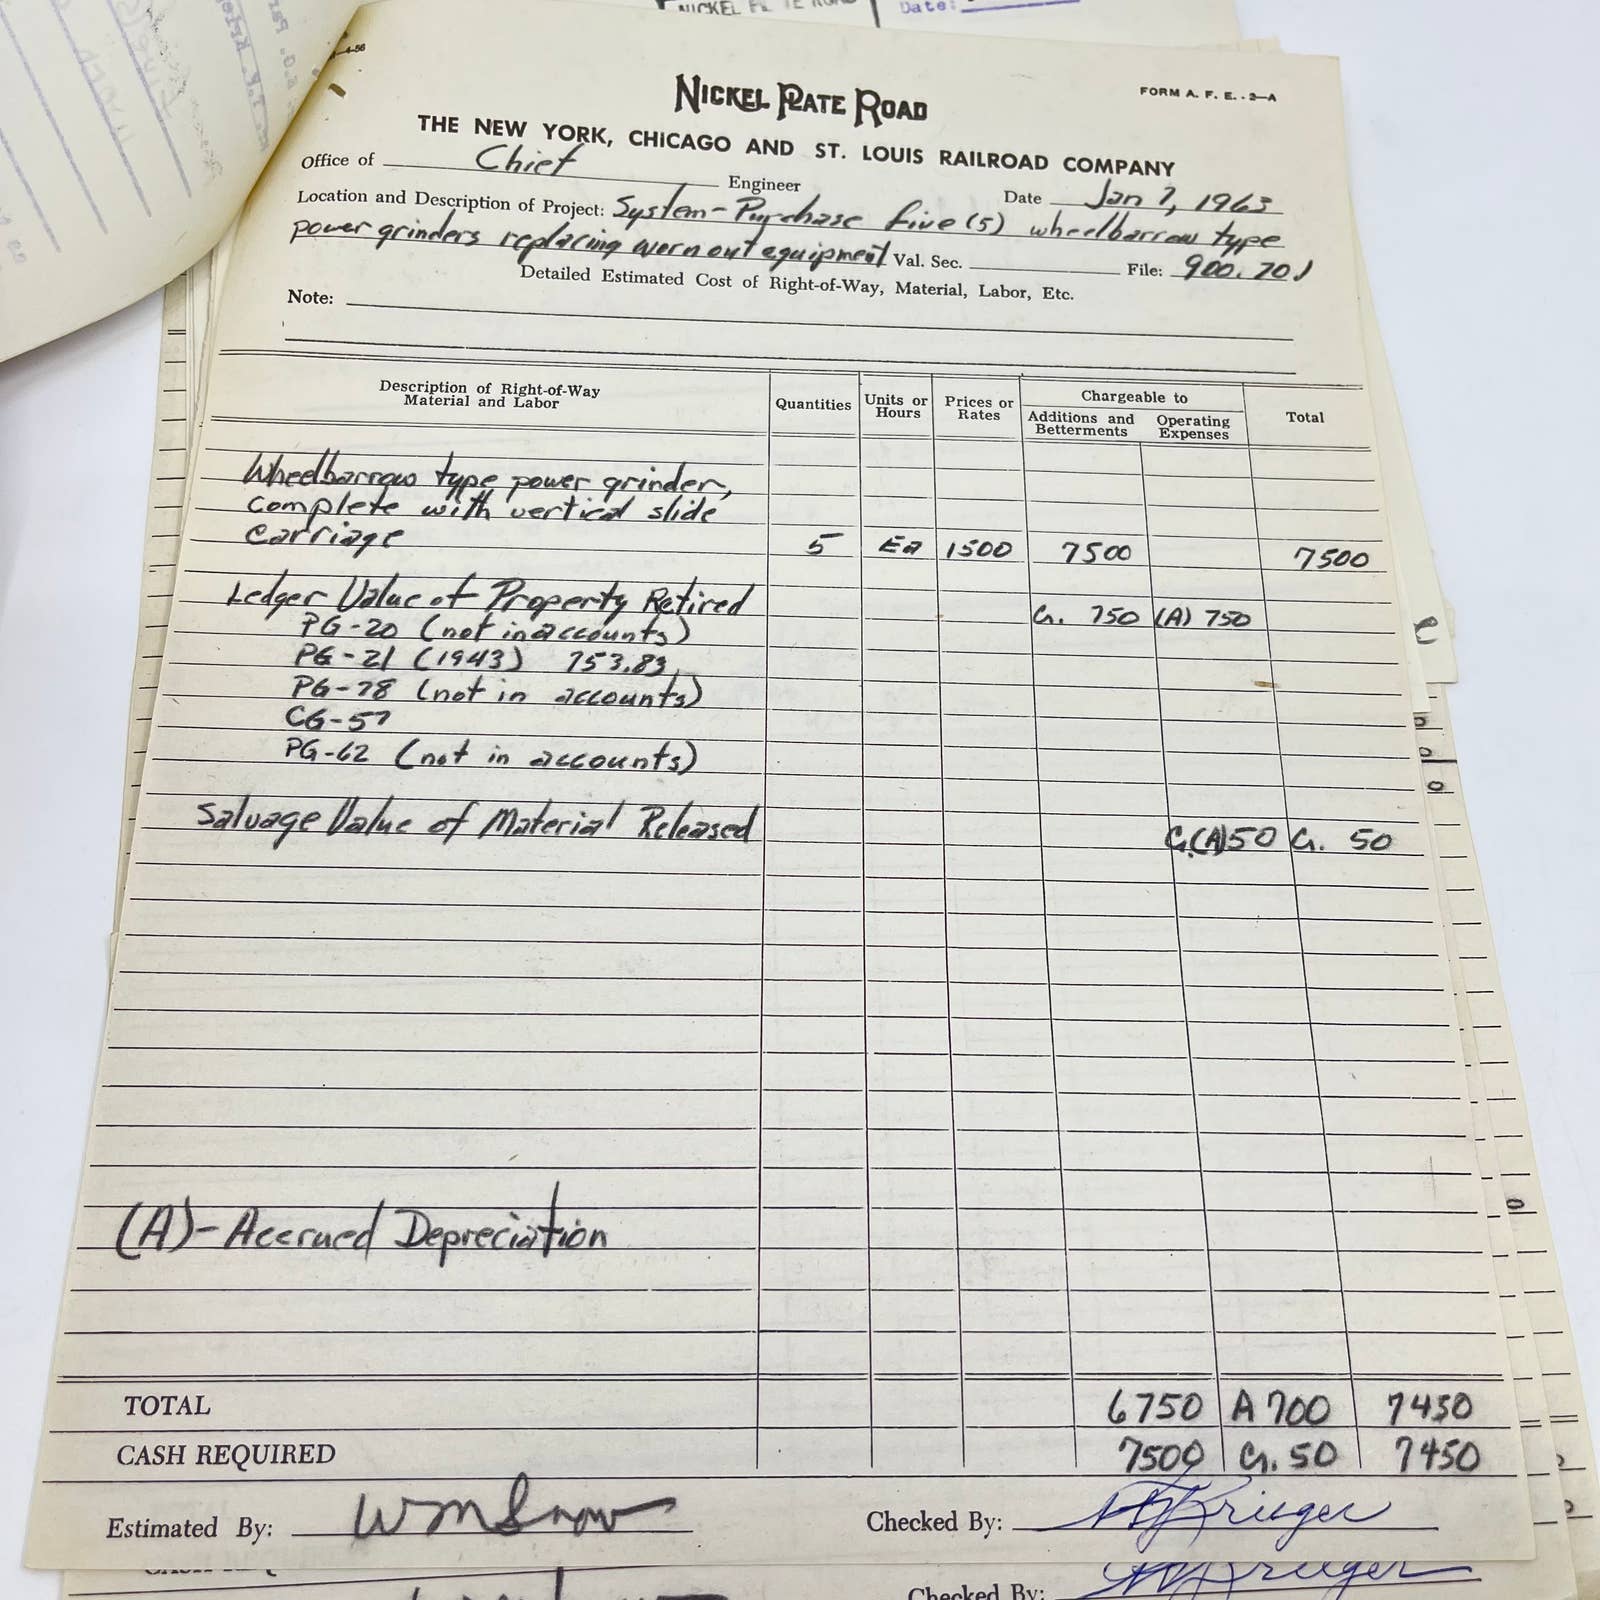 NICKEL PLATE ROAD
Date:
4-56
NICKEL PLATE ROAD
FORM A. F. E. - 2—A
THE NEW YORK, CHICAGO AND ST. LOUIS RAILROAD COMPANY
Office of Chief Engineer
Date Jan 7, 1963
Location and Description of Project: System - Purchase five (5) wheelbarrow type
power grinders replacing worn out equipment Val. Sec. File: 900.701
Detailed Estimated Cost of Right-of-Way, Material, Labor, Etc.
Note:
Description of Right-of-Way Material and Labor Quantities Units or Hours Prices or Rates Chargeable to Additions and Betterments Operating Expenses Total
Wheelbarrow type power grinder,
complete with vertical slide
carriage 5 Ea 1500 7500 7500
Ledger Value of Property Retired Cr. 750 (A) 750
PG-20 (not in accounts)
PG-21 (1943) 753.83
PG-78 (not in accounts)
CG-57
PG-62 (not in accounts)
Salvage Value of Material Released Cr.(A)50 Cr. 50
(A)-Accrued Depreciation
TOTAL 6750 A 700 7450
CASH REQUIRED 7500 Cr. 50 7450
Estimated By: Wm Snow
Checked By: Krieger
Checked By: Krieger